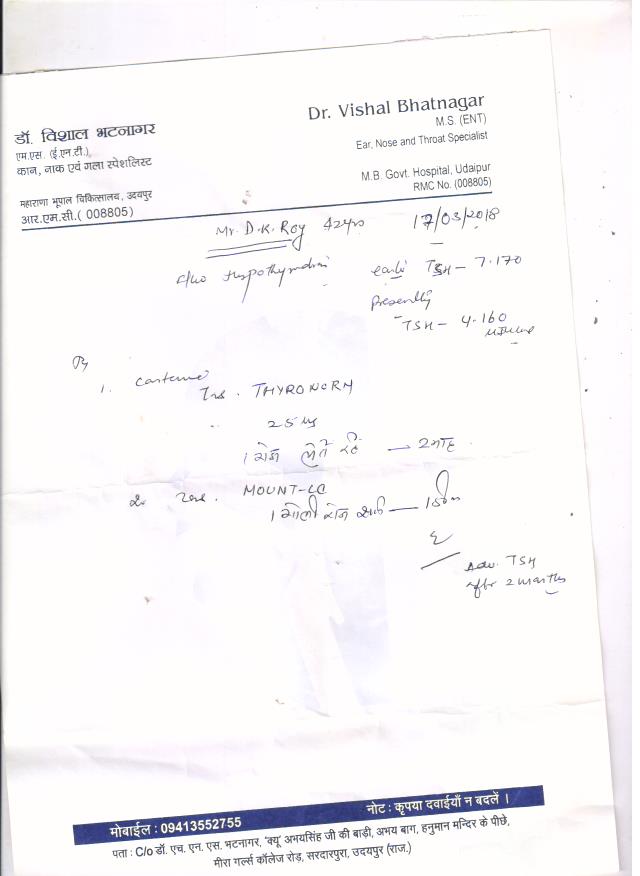 डॉ. विशाल भटनागर
एम.एस. (ई.एन.टी.)
कान, नाक एवं गला स्पेशलिस्ट
महाराणा भूपाल चिकित्सालय, उदयपुर
आर.एम.सी.( 008805)
Dr. Vishal Bhatnagar
M.S. (ENT)
Ear, Nose and Throat Specialist
M.B. Govt. Hospital, Udaipur
RMC No. (008805)
Mr. D.K. Roy 42yrs 17/03/2018
TSH - 7.170
Presently
TSH - 4.160
1.
THYRONORM
25
1 रोज लेते रहें — 2 माह
MOUNT-LC
1 गोली रोज
Adv. TSH
after 2 months
मोबाईल : 09413552755
नोट : कृपया दवाईयाँ न बदलें ।
पता : C/o डॉ. एच. एन. एस. भटनागर, 'क्यू' अभयसिंह जी की बाड़ी, अभय बाग, हनुमान मन्दिर के पीछे,
मीरा गर्ल्स कॉलेज रोड़, सरदारपुरा, उदयपुर (राज.)